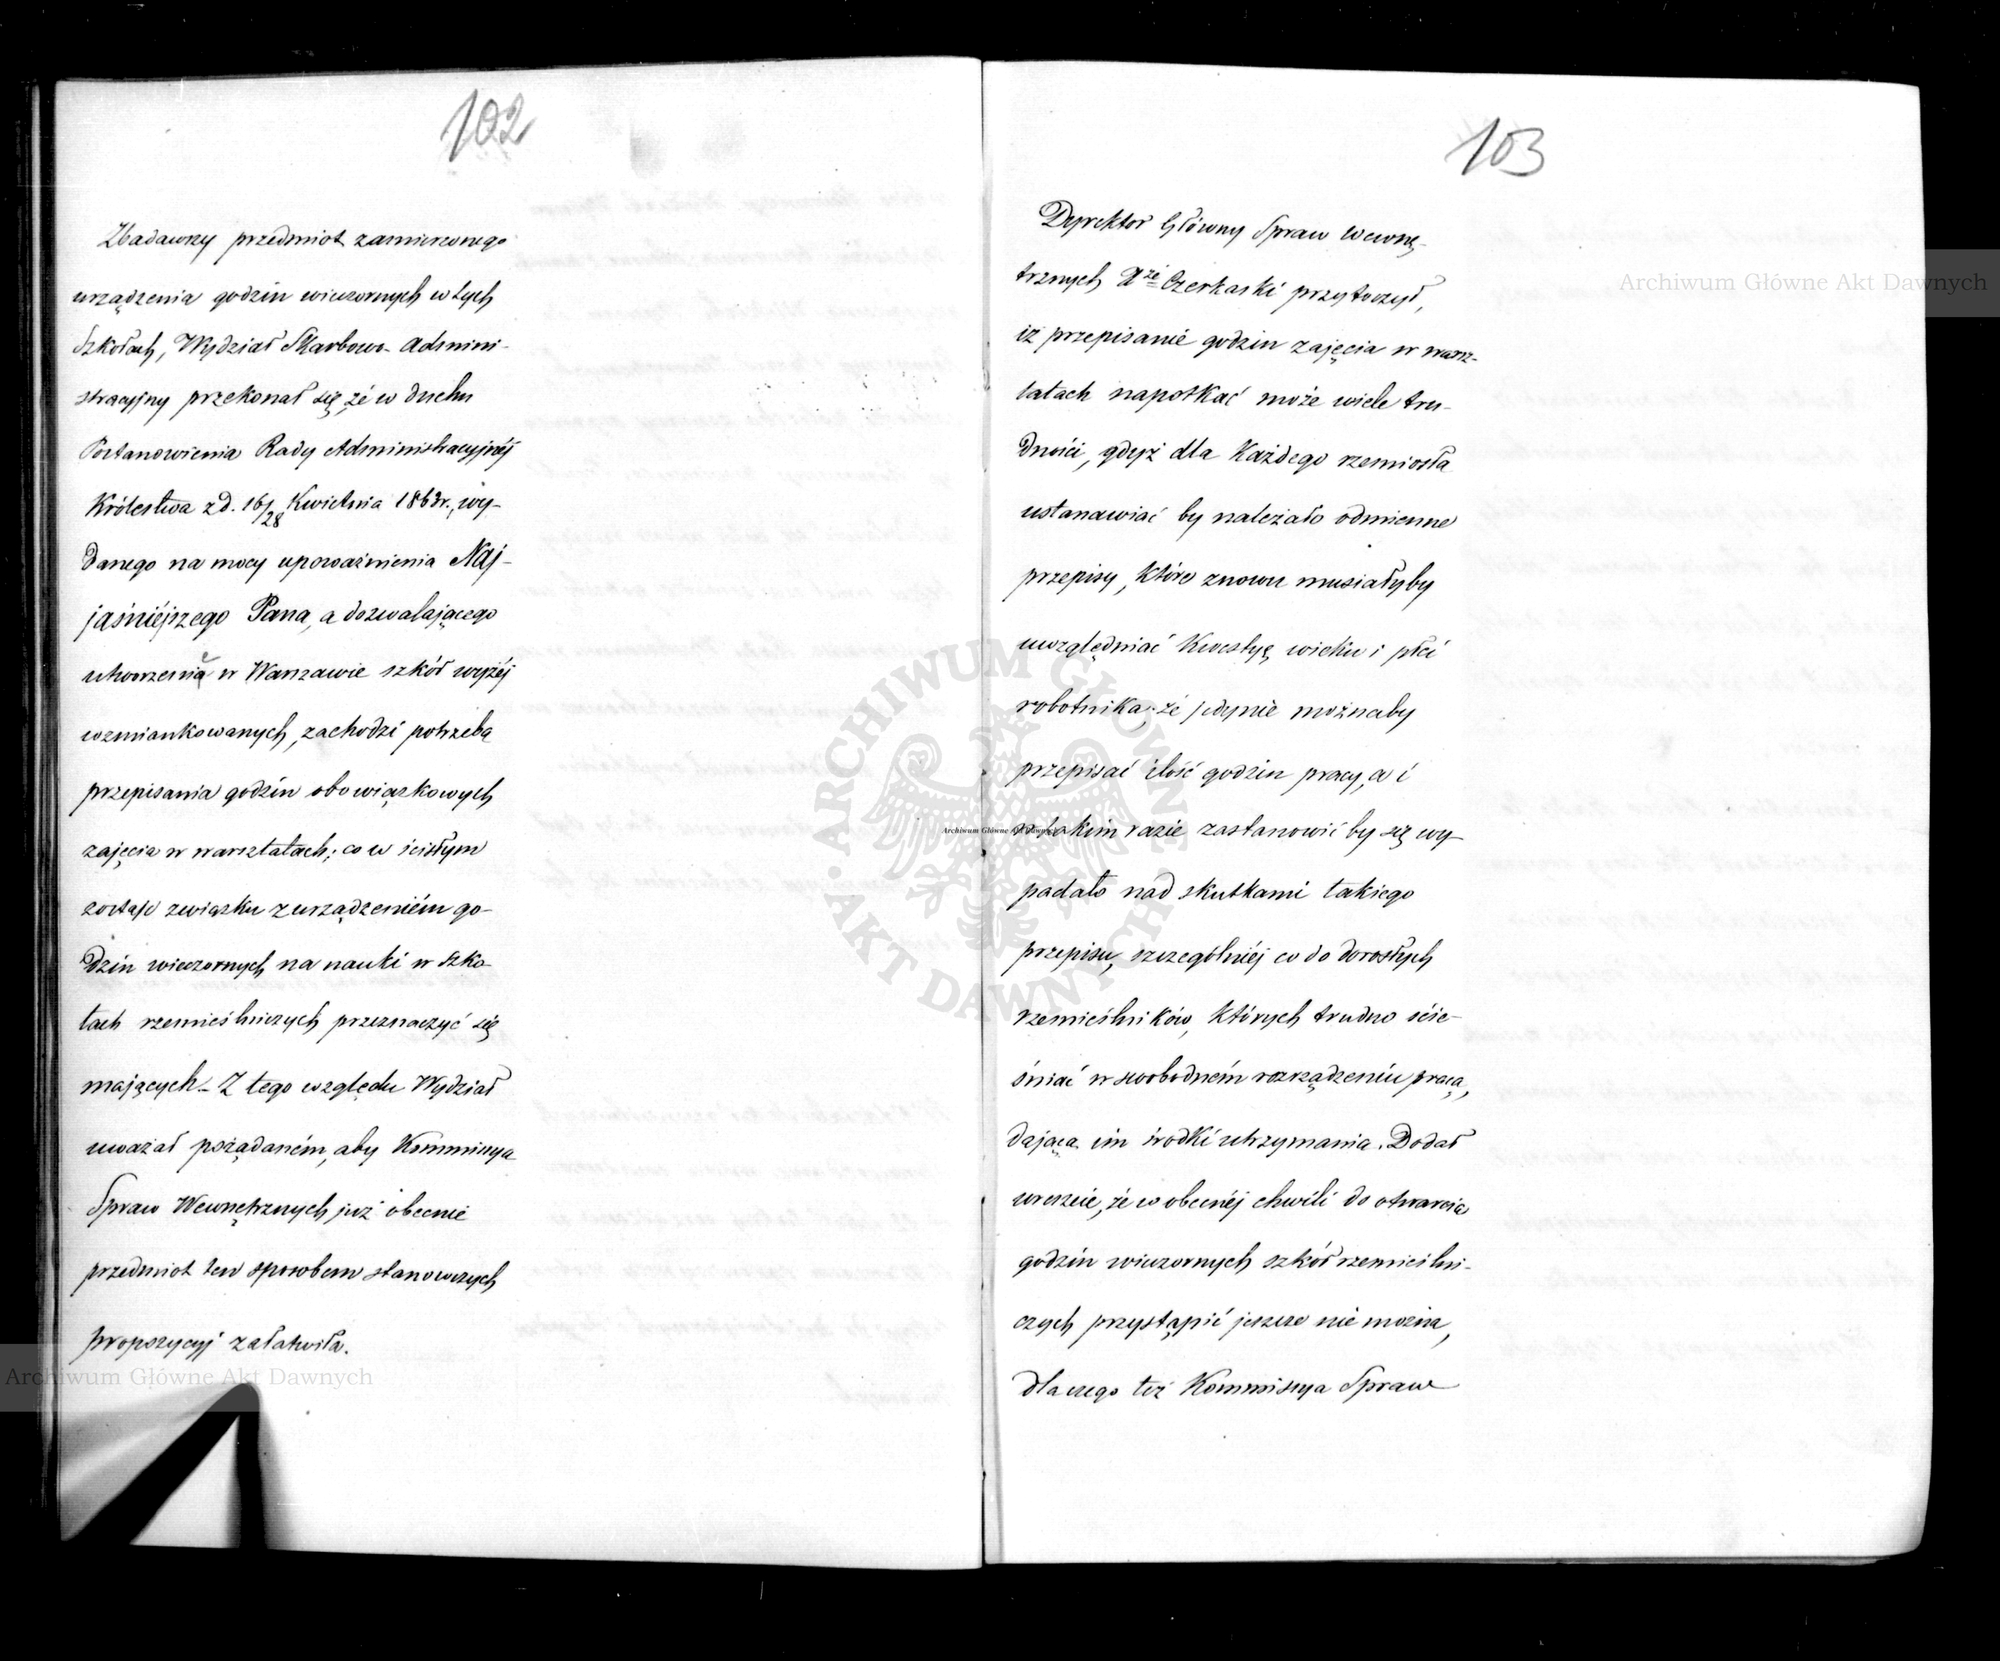 102
Zbadawszy przedmiot zamierzonego
urządzenia godzin wieczornych w tych
Szkołach, Wydział Skarbowo-Admini-
stracyjny przekonał się, że w duchu
Postanowienia Rady Administracyjnéj
Królestwa z d. 16/28 Kwietnia 1863 r., wy-
danego na mocy upoważnienia Naj-
jaśniéjszego Pana, a dozwalającego
utworzenia w Warszawie szkół wyżéj
wzmiankowanych, zachodzi potrzeba
przepisania godzin obowiązkowych
zajęcia w warsztatach; co w ścisłym
zostaje związku z urządzeniem go-
dzin wieczornych na nauki w szko-
łach rzemieślniczych przeznaczyć się
mających. Z tego względu Wydział
uważał pożądaném, aby Kommissya
Spraw Wewnętrznych już obecnie
przedmiot ten sposobem stanowczych
propozycyj załatwiła.
103
Dyrektor Główny Spraw Wewnę-
trznych Xżę Czerkaski przytoczył,
iż przepisanie godzin zajęcia w warsz-
tatach napotkać może wiele tru-
dności, gdyż dla każdego rzemiosła
ustanawiać by należało odmienne
przepisy, które znowu musiałyby
uwzględniać kwestyę wieku i płci
robotnika; że jedynie możnaby
przepisać ilość godzin pracy, a i
w takim razie zastanowić by się wy-
padało nad skutkami takiego
przepisu, szczególniéj co do dorosłych
rzemieślników, których trudno ście-
śniać w swobodném rozrządzeniu pracą,
dającą im środki utrzymania. Dodał
wreszcie, że w obecnéj chwili do otwarcia
godzin wieczornych szkół rzemieślni-
czych przystąpić jeszcze nie można,
dlaczego też Kommissya Spraw
Archiwum Główne Akt Dawnych
Archiwum Główne Akt Dawnych
Archiwum Główne Akt Dawnych
ARCHIWUM GŁÓWNE AKT DAWNYCH